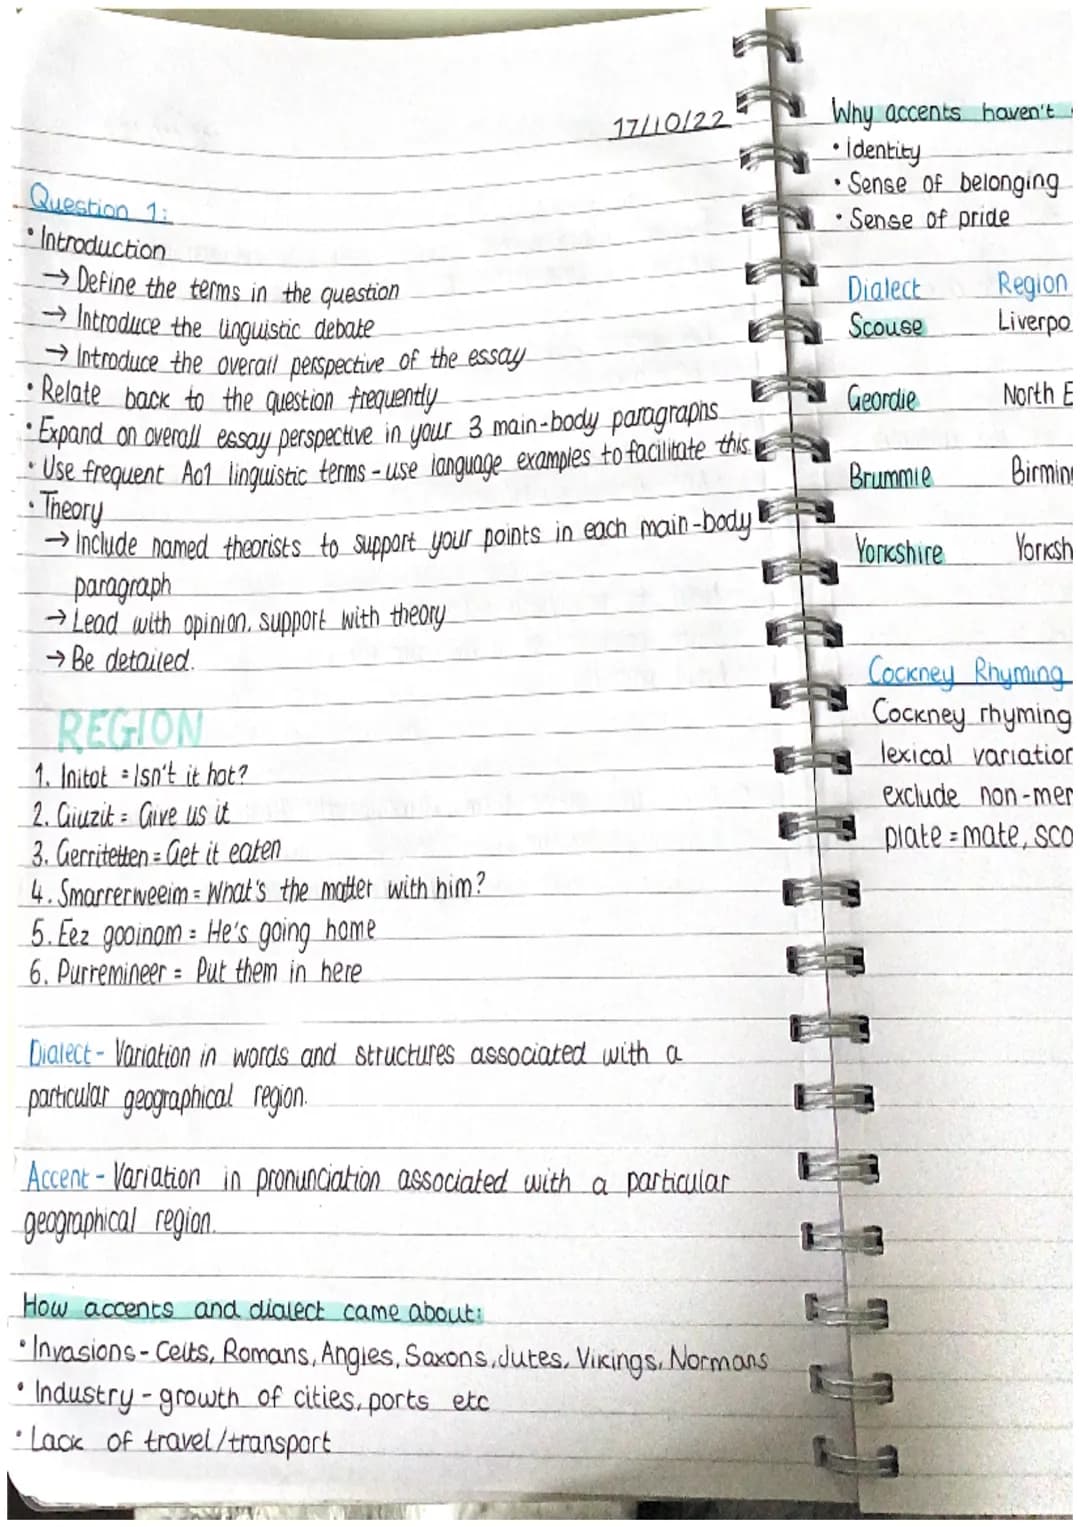 17/10/22
Question 1:
• Introduction
→ Define the terms in the question
→ Introduce the linguistic debate
→ Introduce the overall perspective of the essay
• Relate back to the question frequently
• Expand on overall essay perspective in your 3 main-body paragraphs
• Use frequent Ao1 linguistic terms - use language examples to facilitate this.
• Theory
→ Include named theorists to support your points in each main-body
paragraph
→ Lead with opinion, support with theory
→ Be detailed.
REGION
1. Initot = Isn't it hot?
2. Giuzit = Give us it
3. Gerritetten = Get it eaten
4. Smarrerweeim = What's the matter with him?
5. Eez gooinom = He's going home
6. Purremineer = Put them in here
Dialect - Variation in words and structures associated with a
particular geographical region.
Accent - Variation in pronunciation associated with a particular
geographical region.
How accents and dialect came about:
• Invasions - Celts, Romans, Angles, Saxons, Jutes, Vikings, Normans
• Industry - growth of cities, ports etc
• Lack of travel/transport
Why accents haven't
• Identity
• Sense of belonging
• Sense of pride
Dialect Region
Scouse Liverpo
Geordie North E
Brummie Birmin
Yorkshire Yorksh
Cockney Rhyming
Cockney rhyming
lexical variation
exclude non-mem
plate = mate, sco